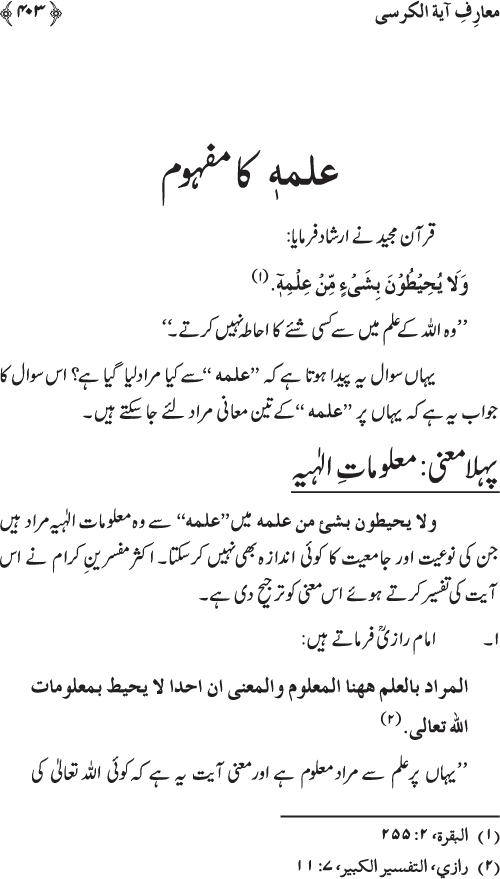 معارفِ آیۃ الکرسی
﴿۴۰۳﴾
علمهٖ کا مفہوم
قرآن مجید نے ارشاد فرمایا:
وَلَا يُحِيْطُوْنَ بِشَيْءٍ مِّنْ عِلْمِهٖٓ. (۱)
’’وہ اللہ کے علم میں سے کسی شئے کا احاطہ نہیں کرتے۔‘‘
یہاں سوال یہ پیدا ہوتا ہے کہ ’’علمه‘‘ سے کیا مراد لیا گیا ہے؟ اس سوال کا
جواب یہ ہے کہ یہاں پر ’’علمه‘‘ کے تین معانی مراد لئے جا سکتے ہیں۔
پہلا معنی: معلوماتِ الٰہیہ
ولا يحيطون بشئ من علمه میں ’’علمه‘‘ سے وہ معلومات الٰہیہ مراد ہیں
جن کی نوعیت اور جامعیت کا کوئی اندازہ بھی نہیں کر سکتا۔ اکثر مفسرینِ کرام نے اس
آیت کی تفسیر کرتے ہوئے اس معنی کو ترجیح دی ہے۔
۱۔ امام رازیؒ فرماتے ہیں:
المراد بالعلم ههنا المعلوم والمعنى ان احدا لا يحيط بمعلومات
الله تعالى. (۲)
’’یہاں پر علم سے مراد معلوم ہے اور معنی آیت یہ ہے کہ کوئی اللہ تعالیٰ کی
(۱) البقرة، ۲: ۲۵۵
(۲) رازي، التفسير الكبير، ۷: ۱۱